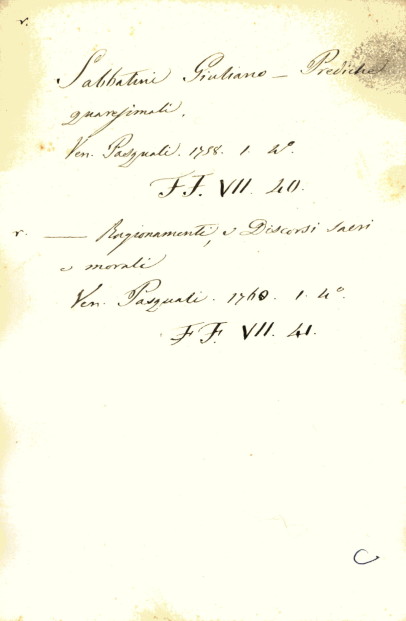 r.
Sabbatini Giuliano — Prediche
quaresimali.
Ven. Pasquali. 1758. 1. 4°.
FF. VII. 40.
r. —— Ragionamenti, e Discorsi sacri
e morali
Ven. Pasquali. 1760. 1. 4°.
FF. VII. 41.
C